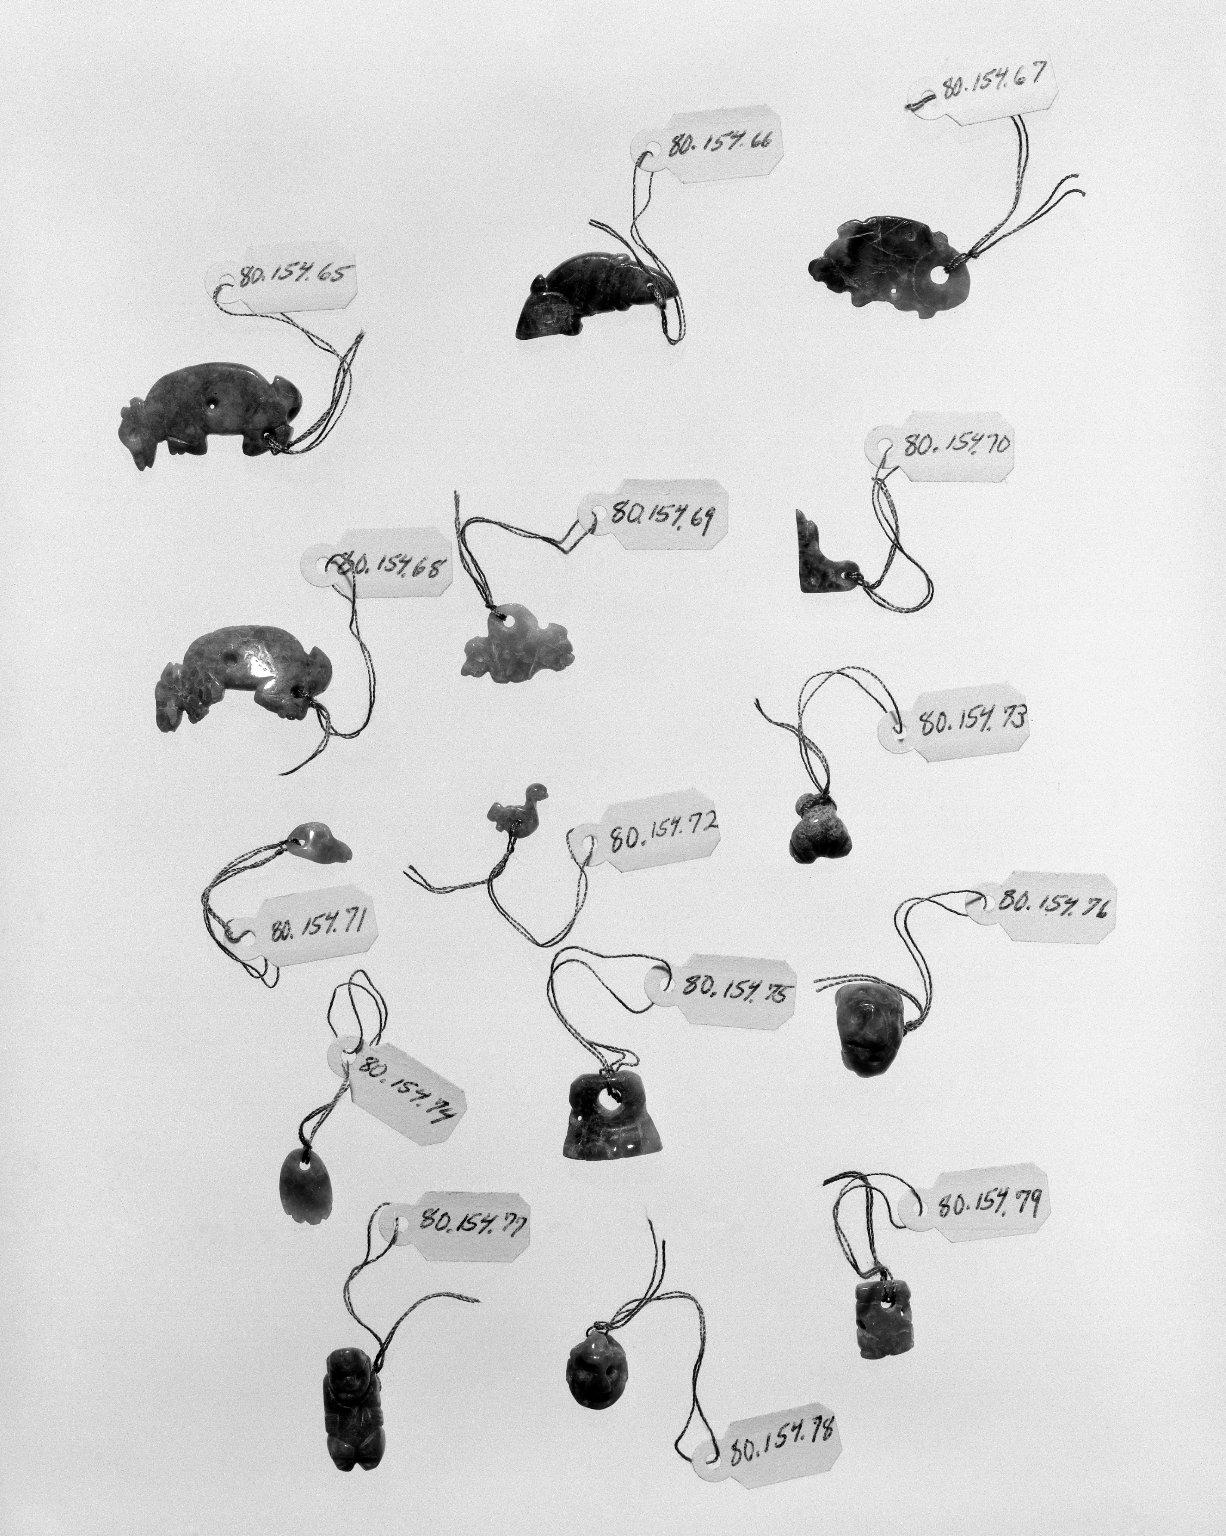 80.154.67
80.154.66
80.154.65
80.154.70
80.154.69
80.154.68
80.154.73
80.154.72
80.154.71
80.154.76
80.154.75
80.154.74
80.154.79
80.154.77
80.154.78